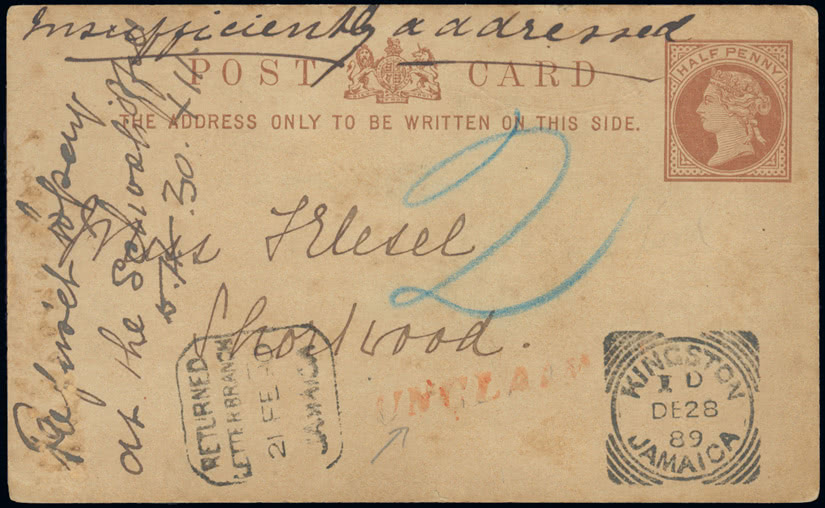 Insufficiently addressed
POST CARD
HALF PENNY
THE ADDRESS ONLY TO BE WRITTEN ON THIS SIDE.
Miss
Shortwood.
at the
30
2
RETURNED
LETTER BRANCH
21 FE 90
JAMAICA
UNCLAIM
KINGSTON
D
DE 28
89
JAMAICA